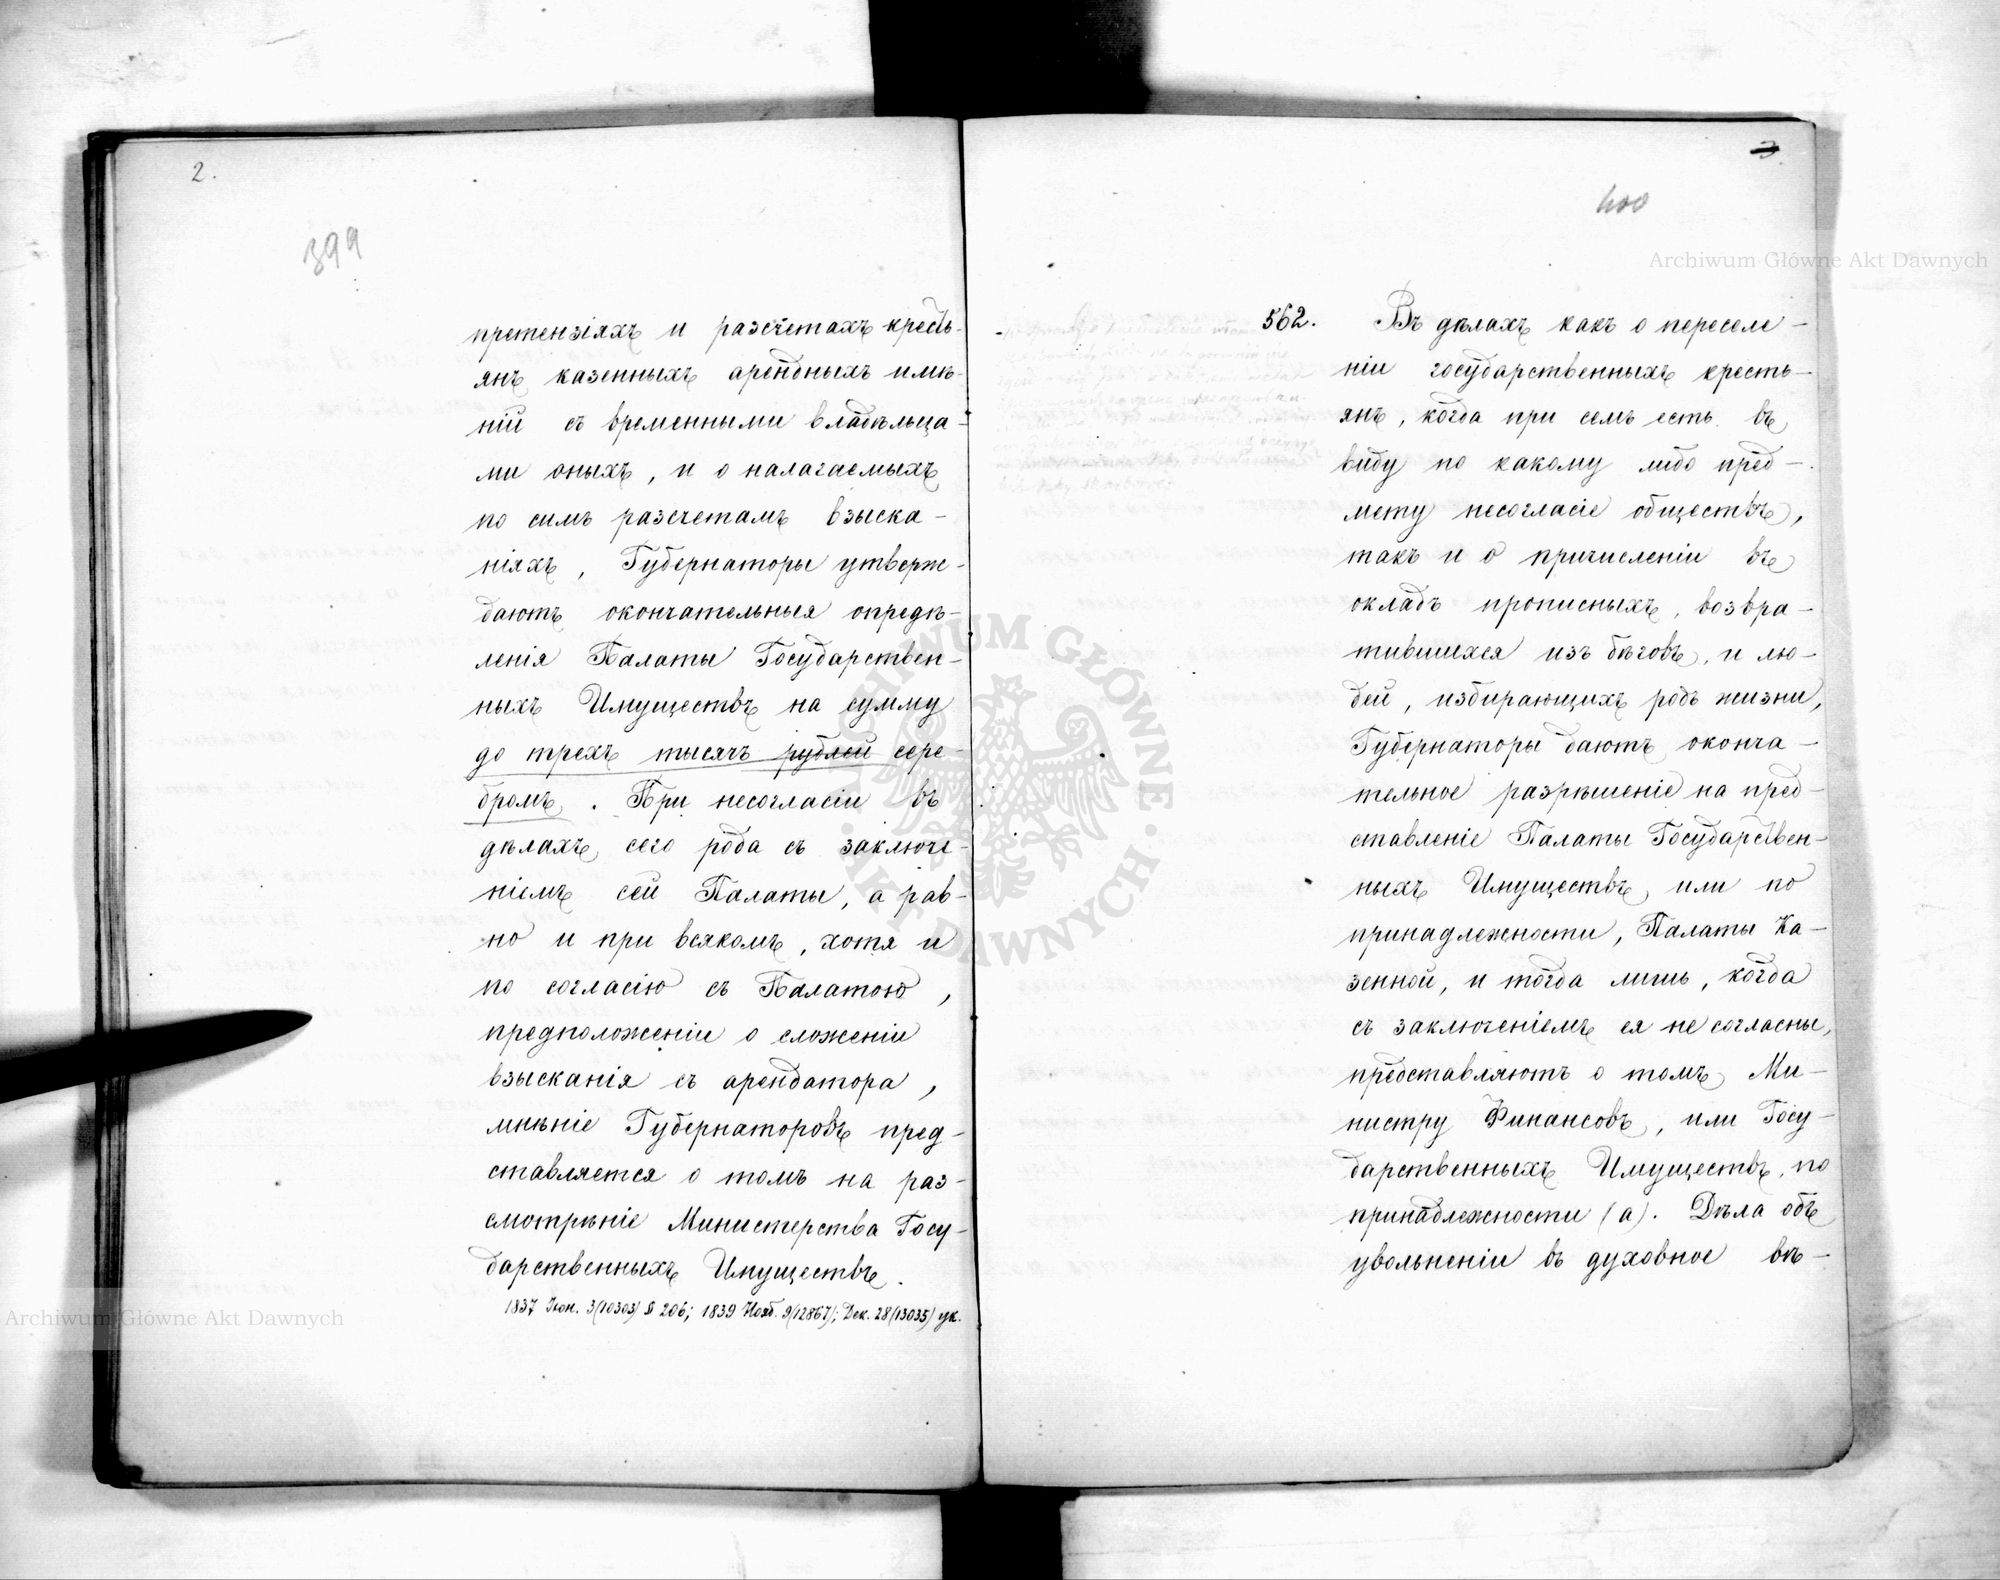 2.
399
претензіяхъ и разсчетахъ кресть-
янъ казенныхъ арендныхъ имѣ-
ній съ временными владѣльца-
ми оныхъ, и о налагаемыхъ
по симъ разсчетамъ взыска-
ніяхъ, Губернаторы утверж-
даютъ окончательныя опредѣ-
ленія Палаты Государствен-
ныхъ Имуществъ на сумму
до трехъ тысячъ рублей сере-
бромъ. При несогласіи въ
дѣлахъ сего рода съ заключе-
ніемъ сей Палаты, а рав-
но и при всякомъ, хотя и
по согласію съ Палатою,
предположеніи о сложеніи
взысканія съ арендатора,
мнѣніе Губернаторовъ пред-
ставляется о томъ на раз-
смотрѣніе Министерства Госу-
дарственныхъ Имуществъ.
1837 Іюн. 3 (10303) § 206; 1839 Нояб. 9 (12867); Дек. 28 (13035) ук.
3.
400
562. Въ дѣлахъ какъ о переселе-
ніи государственныхъ кресть-
янъ, когда при семъ есть въ
виду по какому либо пред-
мету несогласіе обществъ,
такъ и о причисленіи въ
окладъ прописныхъ, возвра-
тившихся изъ бѣговъ, и лю-
дей, избирающихъ родъ жизни,
Губернаторы даютъ оконча-
тельное разрѣшеніе на пред-
ставленіе Палаты Государствен-
ныхъ Имуществъ, или по
принадлежности, Палаты Ка-
зенной, и тогда лишь, когда
съ заключеніемъ ея не согласны,
представляютъ о томъ Ми-
нистру Финансовъ, или Госу-
дарственныхъ Имуществъ, по
принадлежности (а). Дѣла объ
увольненіи въ духовное вѣ-
Archiwum Główne Akt Dawnych
Archiwum Główne Akt Dawnych
ARCHIWUM GŁÓWNE AKT DAWNYCH